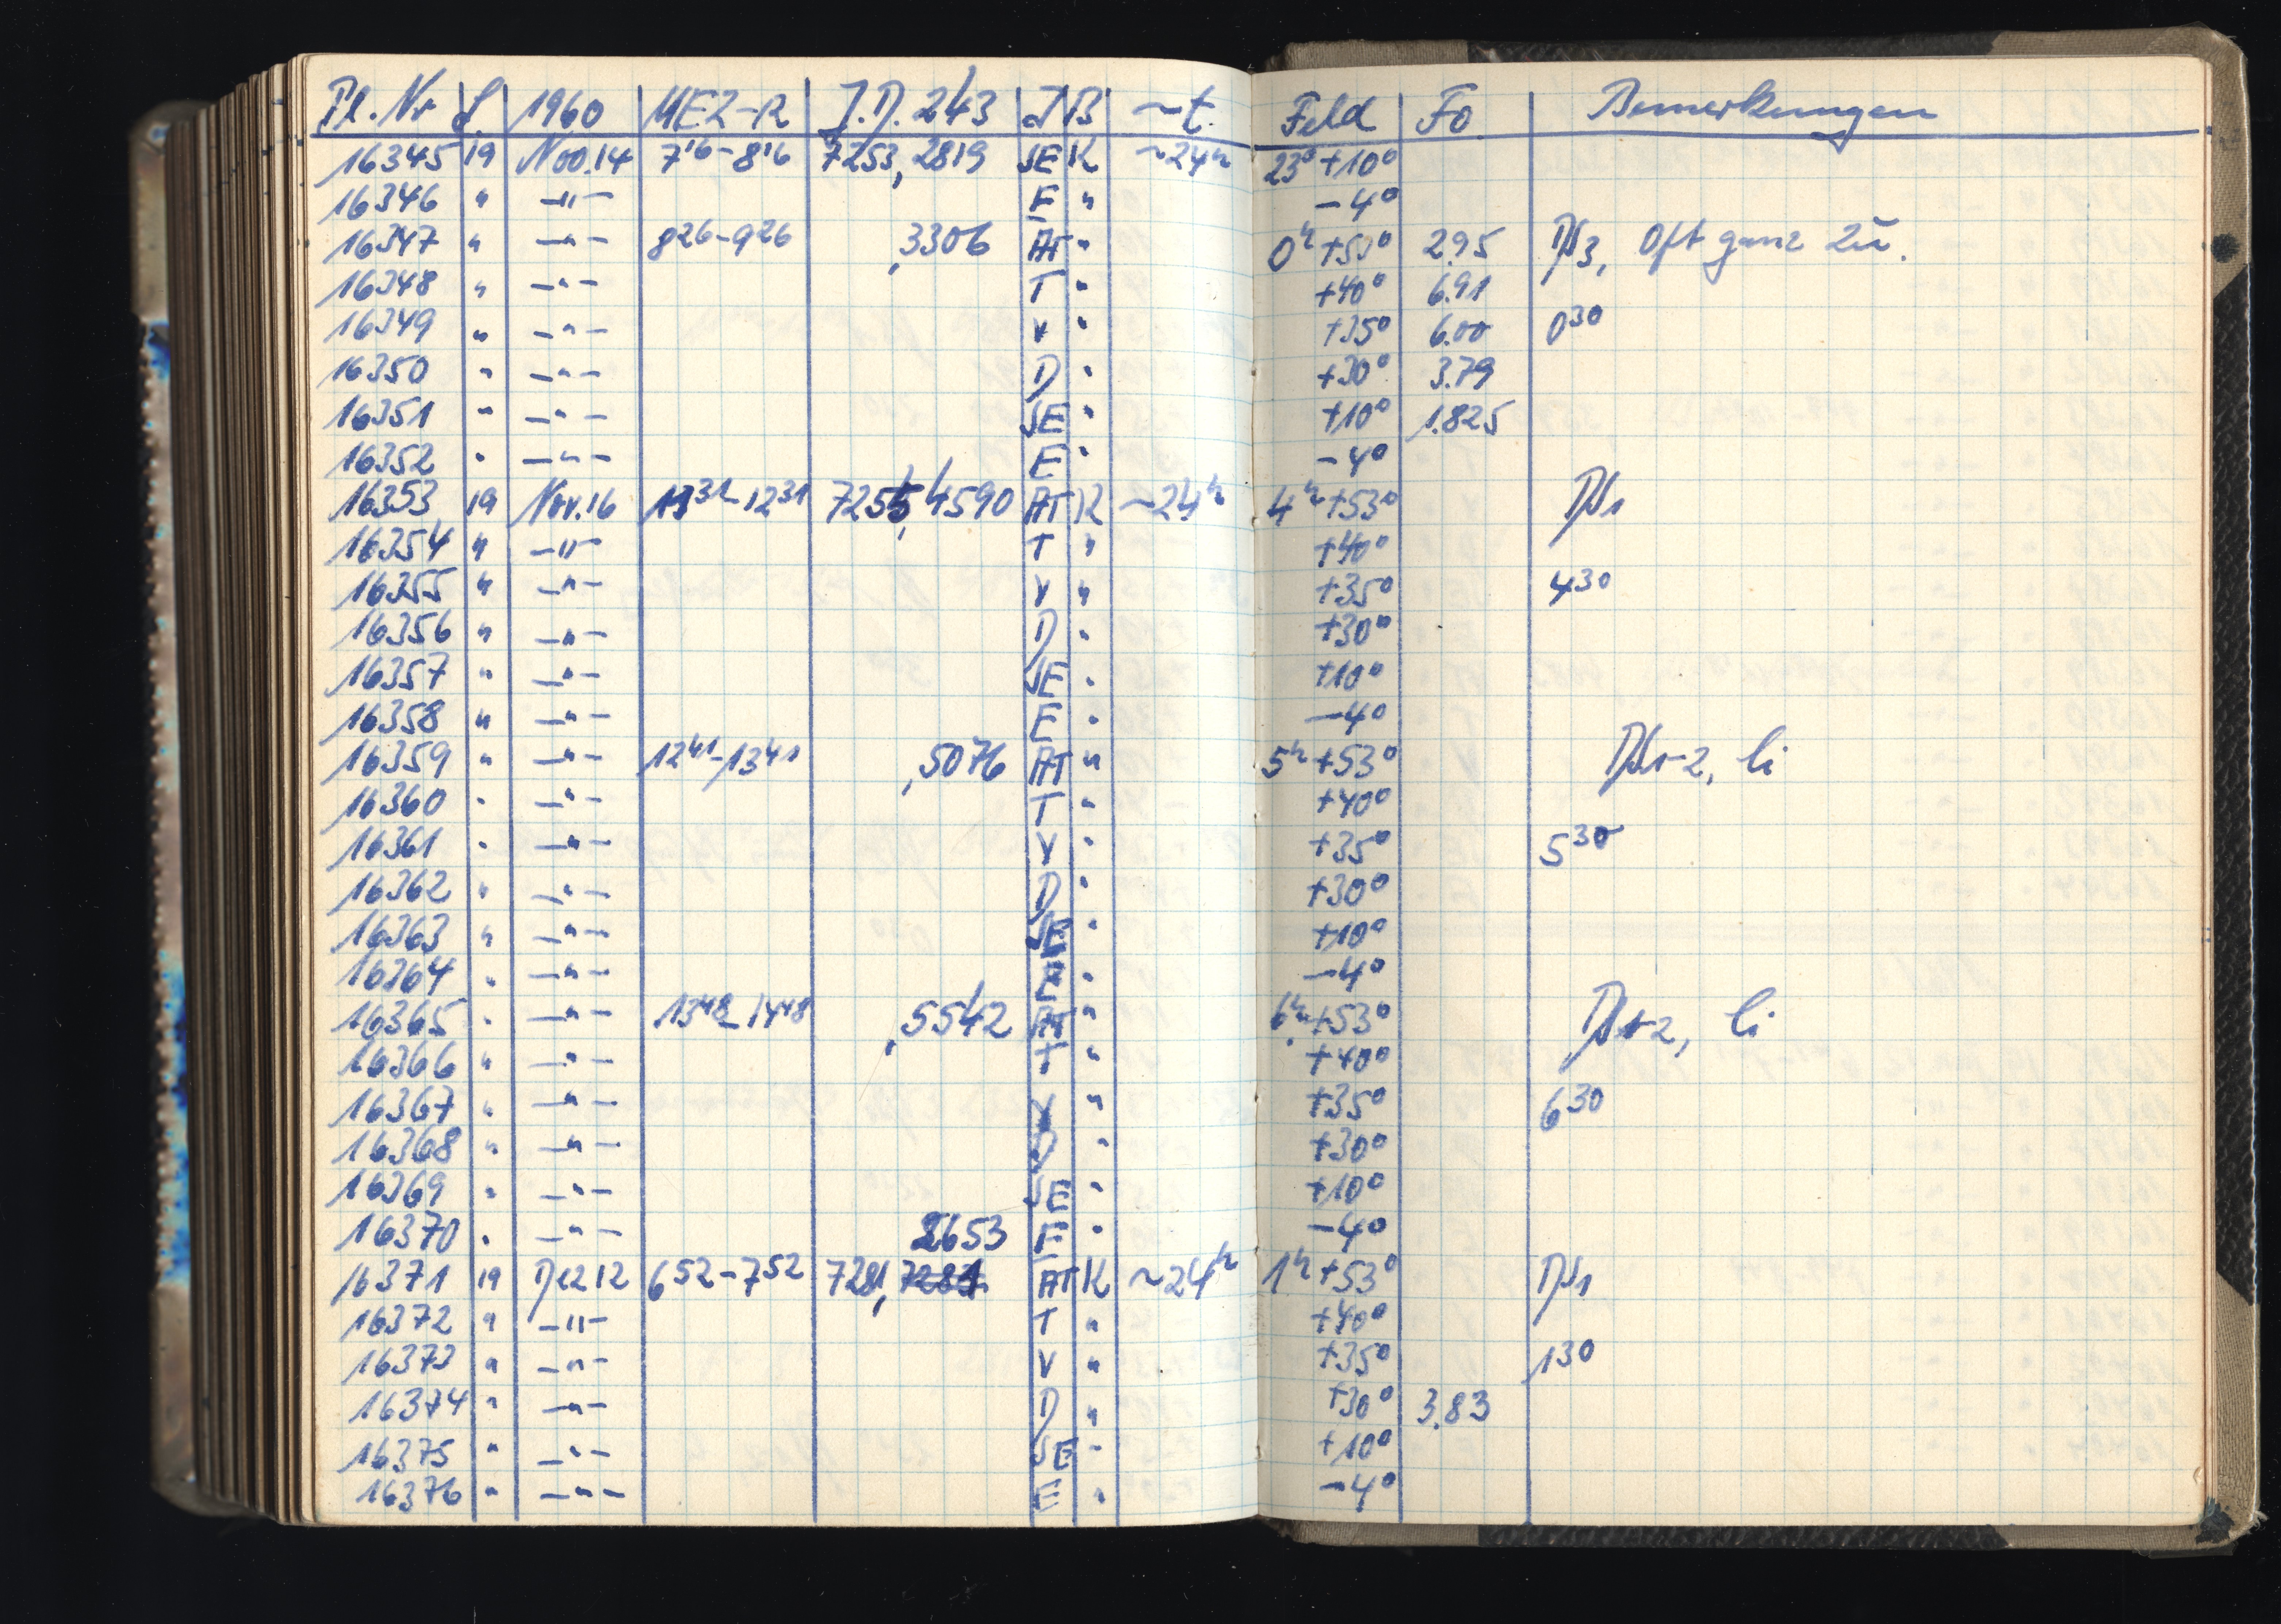 Pl. Nr S. 1960 MEZ-R J.D. 243 J B ~t. Feld Fo Bemerkungen
16345 19 Nov. 14 7 16 - 8 16 7253,2819 SE K ~24h 23h +10°
16346 " -"- E " -4°
16347 " -"- 8 26 - 9 26 ,3306 AT " 0h +53° 2.95 Ds3, oft ganz zu.
16348 " -"- T " +40° 6.91
16349 " -"- V " +35° 6.00 0 30
16350 " -"- D " +30° 3.79
16351 " -"- SE " +10° 1.825
16352 " -"- E " -4°
16353 19 Nov. 16 11 31 - 12 31 7255,4590 AT K ~24h 4h +53° Ds1
16354 " -"- T " +40°
16355 " -"- V " +35° 4 30
16356 " -"- D " +30°
16357 " -"- SE " +10°
16358 " -"- E " -4°
16359 " -"- 12 41 - 13 41 ,5076 AT " 5h +53° Ds1-2, li
16360 " -"- T " +40°
16361 " -"- V " +35° 5 30
16362 " -"- D " +30°
16363 " -"- SE " +10°
16364 " -"- E " -4°
16365 " -"- 13 48 - 14 48 ,5542 AT " 6h +53° Ds1-2, li
16366 " -"- T " +40°
16367 " -"- V " +35° 6 30
16368 " -"- D " +30°
16369 " -"- SE " +10°
16370 " -"- 2653 E " -4°
16371 19 Dez 12 6 52 - 7 52 7281, AT K ~24h 1h +53° Ds1
16372 " -"- T " +40°
16373 " -"- V " +35° 1 30
16374 " -"- D " +30° 3.83
16375 " -"- SE " +10°
16376 " -"- E " -4°